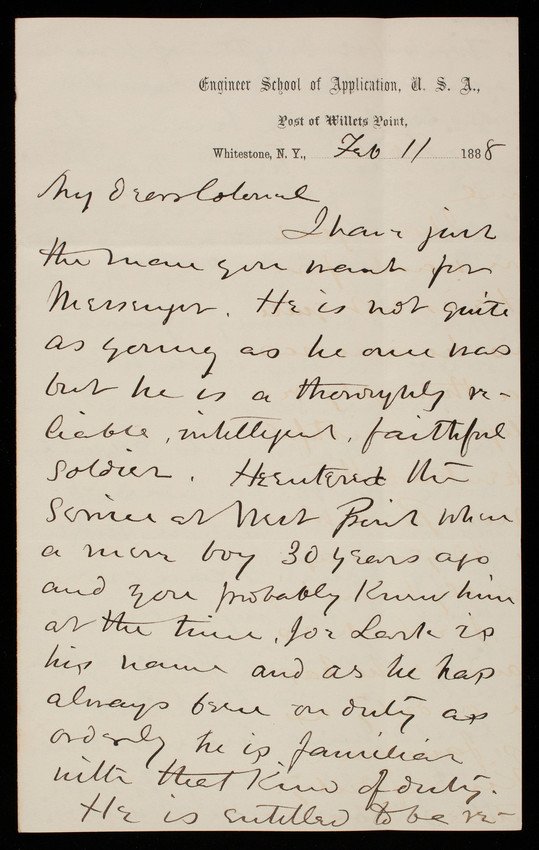 Engineer School of Application, U. S. A.,
Post of Willets Point,
Whitestone, N. Y., Feb 11 1888
My Dear Colonel
I have just
the man you want for
Messenger. He is not quite
as young as he once was
but he is a thoroughly re-
liable, intelligent, faithful
soldier. He entered the
Service at West Point when
a mere boy 30 years ago
and you probably knew him
at the time. Joe Lark is
his name and as he has
always been on duty as
orderly he is familiar
with that kind of duty.
He is entitled to be re-